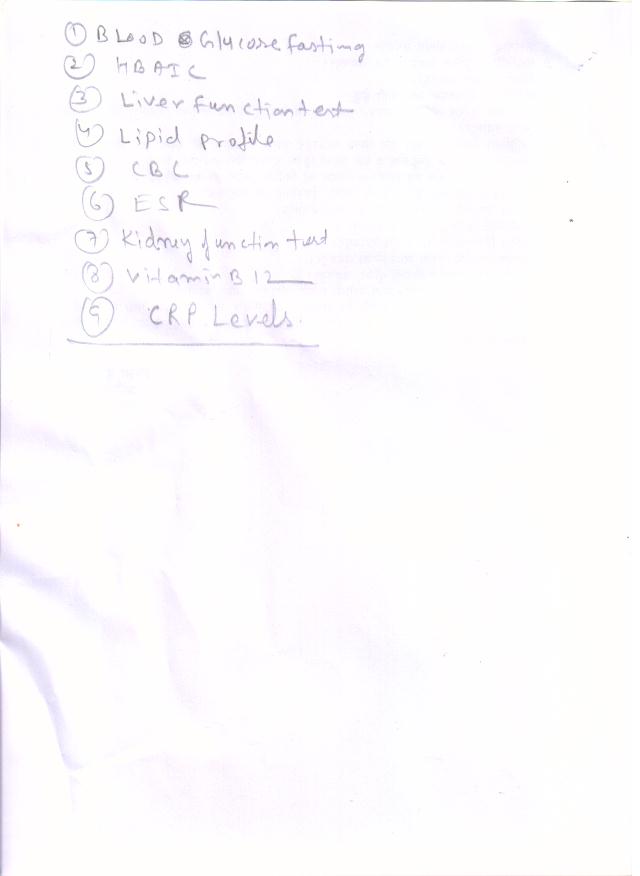 ① BLOOD Glucose fasting
② HBAIC
③ Liver function test
④ Lipid profile
⑤ CBC
⑥ ESR
⑦ Kidney function test
⑧ Vitamin B 12
⑨ CRP Levels.